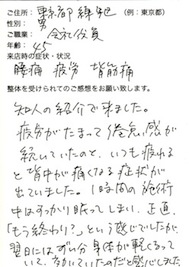 ご住所： 東京都練馬 （例：東京都）
性別： 男
ご職業： 会社役員
年齢： 45
来店時の症状・状況
腰痛 疲労 背筋痛
整体を受けられてのご感想をお願い致します。
知人の紹介で来ました。
疲労がたまって倦怠感が
続いていたのと、いつも疲れる
と背中が痛くなる症状が
出ていました。1時間の施術
中はすっかり眠ってしまい、正直、
「もう終わり？」という感じでしたが、
翌日にはずい分身体が軽くなって
いて、効いていたのだと感じました